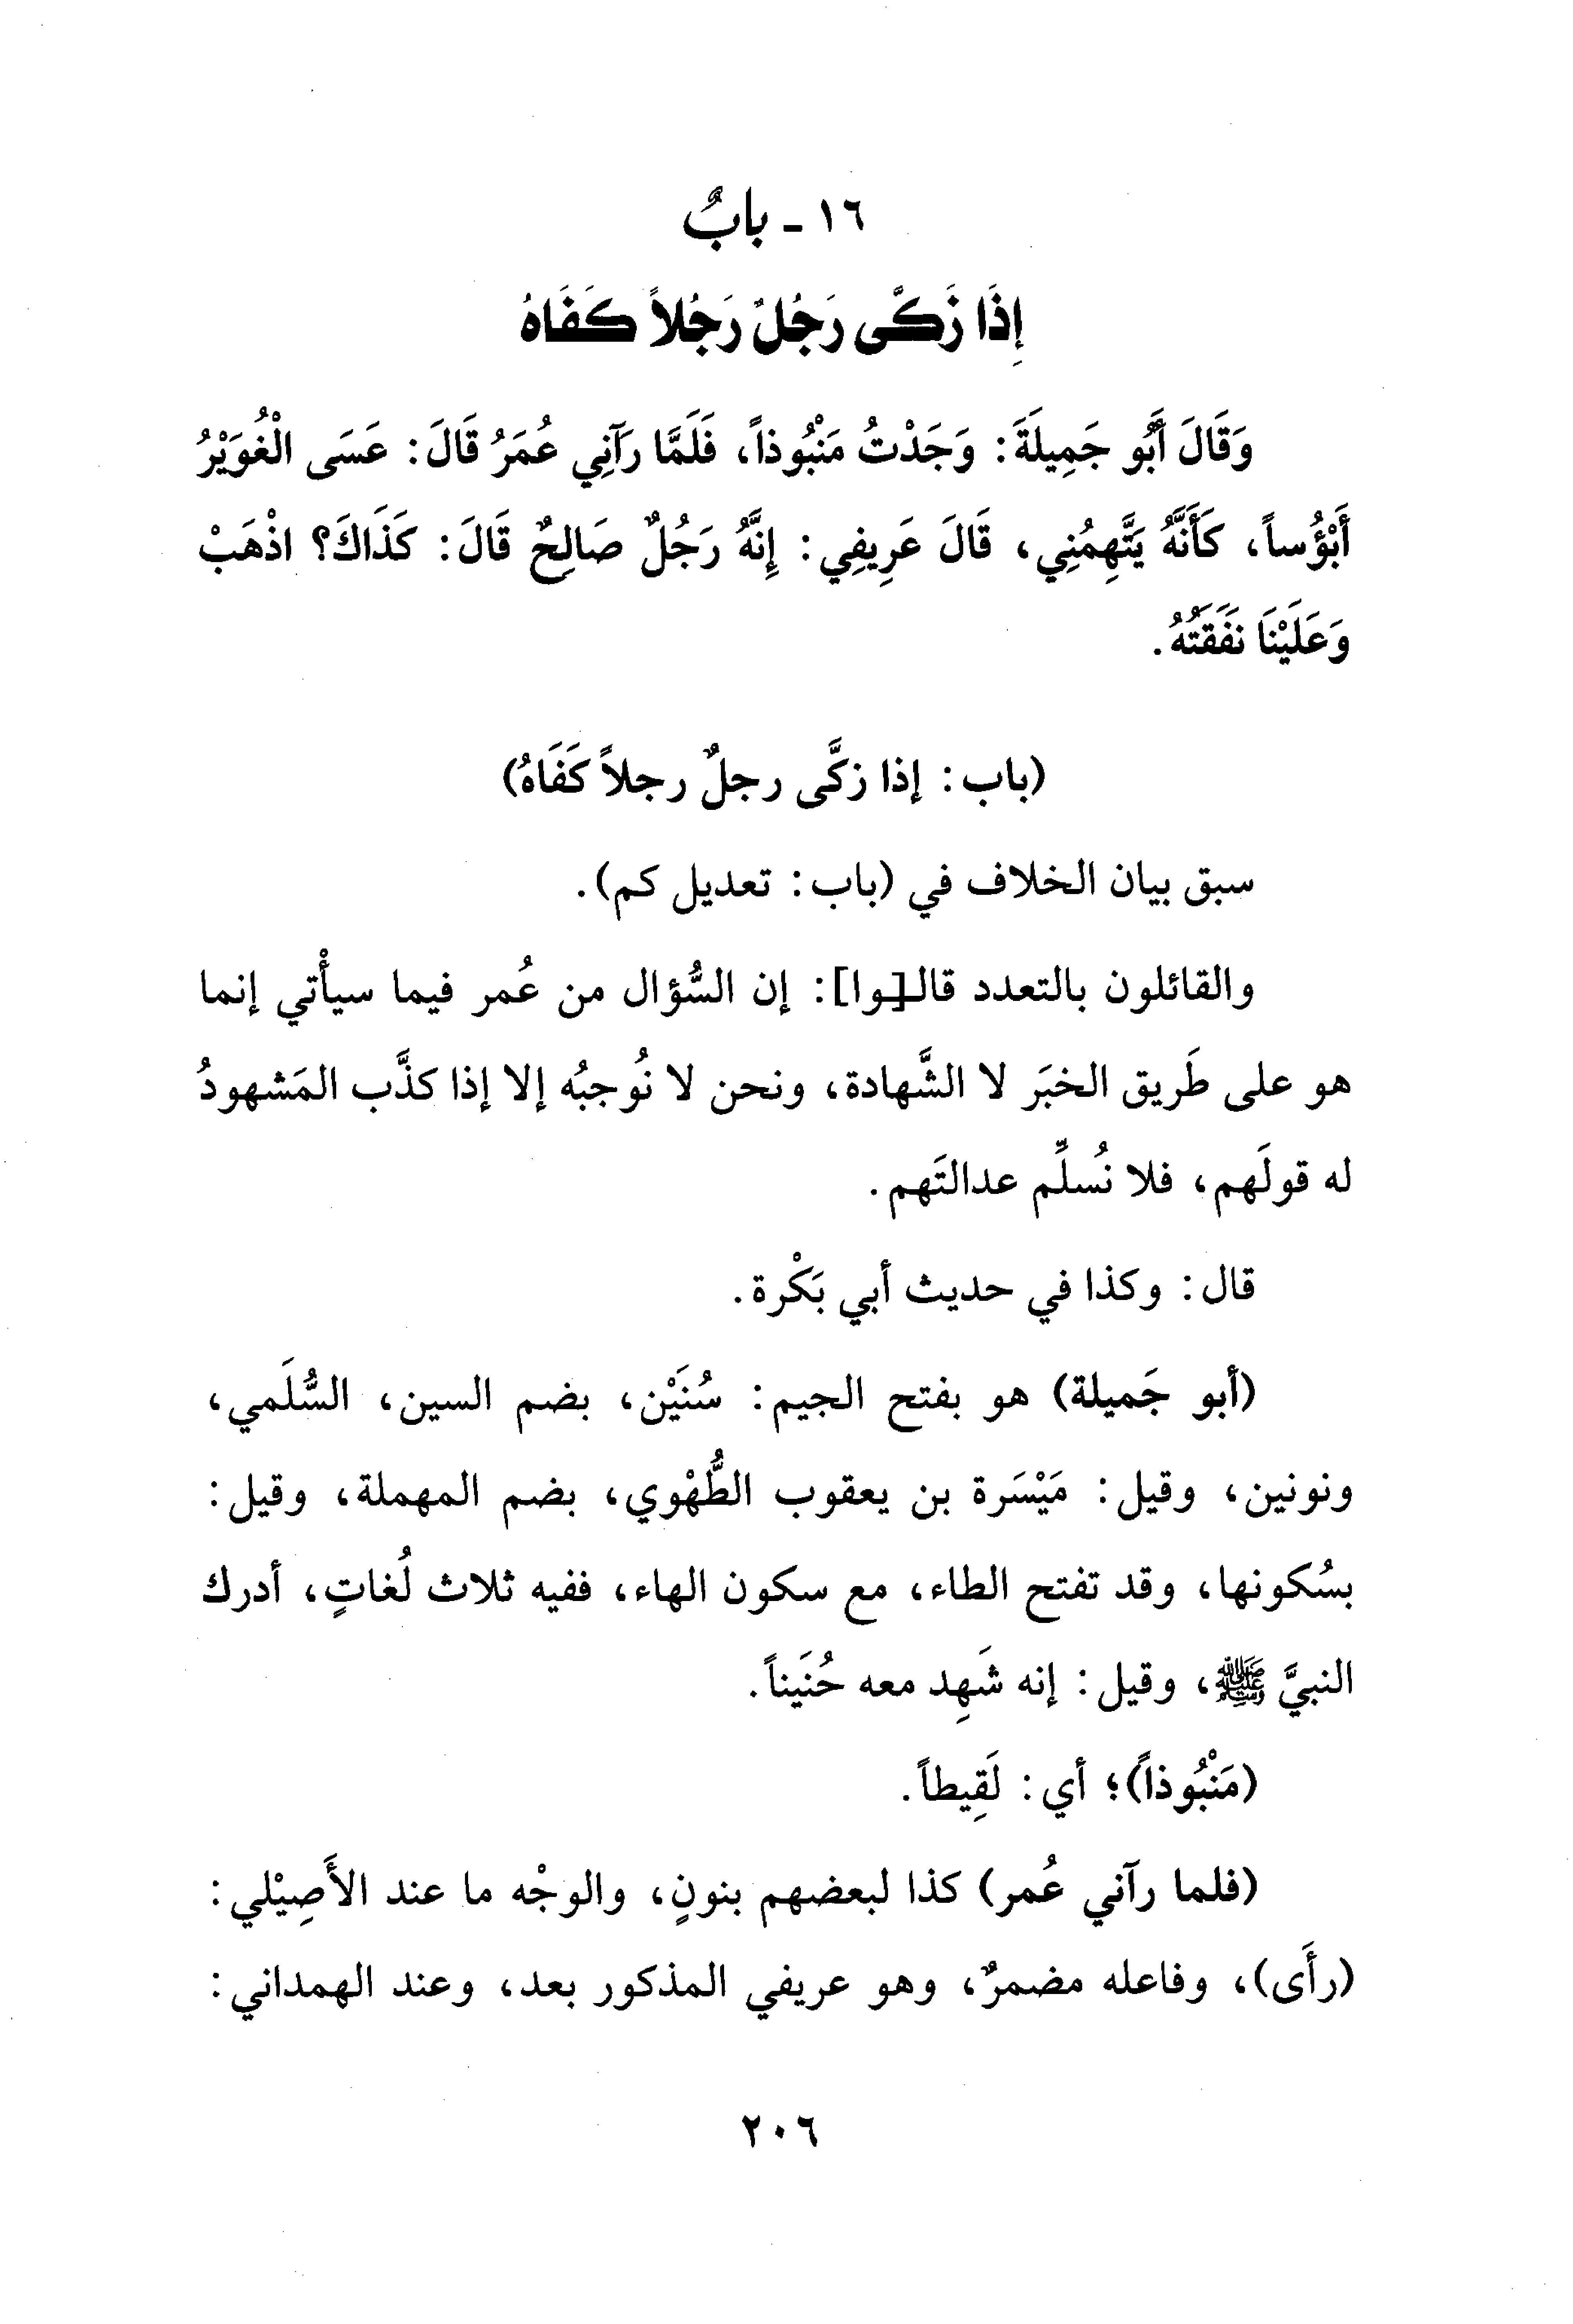 ١٦ - بابٌ
إِذَا زَكَّى رَجُلٌ رَجُلاً كَفَاهُ
وَقَالَ أَبُو جَمِيلَةَ: وَجَدْتُ مَنْبُوذاً، فَلَمَّا رَآنِي عُمَرُ قَالَ: عَسَى الْغُوَيْرُ
أَبْؤُساً، كَأَنَّهُ يَتَّهِمُنِي، قَالَ عَرِيفِي: إِنَّهُ رَجُلٌ صَالِحٌ قَالَ: كَذَاكَ؟ اذْهَبْ
وَعَلَيْنَا نَفَقَتُهُ.
(باب: إذا زكَّى رجلٌ رجلاً كَفَاهُ)
سبق بيان الخلاف في (باب: تعديل كم).
والقائلون بالتعدد قالـ[ـوا]: إن السُّؤال من عُمر فيما سيأْتي إنما
هو على طَريق الخبَر لا الشَّهادة، ونحن لا نُوجبُه إلا إذا كذَّب المَشهودُ
له قولَهم، فلا نُسلِّم عدالتَهم.
قال: وكذا في حديث أبي بَكْرة.
(أبو جَميلة) هو بفتح الجيم: سُنَيْن، بضم السين، السُّلَمي،
ونونين، وقيل: مَيْسَرة بن يعقوب الطُّهْوي، بضم المهملة، وقيل:
بسُكونها، وقد تفتح الطاء، مع سكون الهاء، ففيه ثلاث لُغاتٍ، أدرك
النبيَّ ﷺ، وقيل: إنه شَهِد معه حُنَيناً.
(مَنْبُوذاً)؛ أي: لَقِيطاً.
(فلما رآني عُمر) كذا لبعضهم بنونٍ، والوجْه ما عند الأَصِيْلي:
(رأَى)، وفاعله مضمرٌ، وهو عريفي المذكور بعد، وعند الهمداني:
٢٠٦